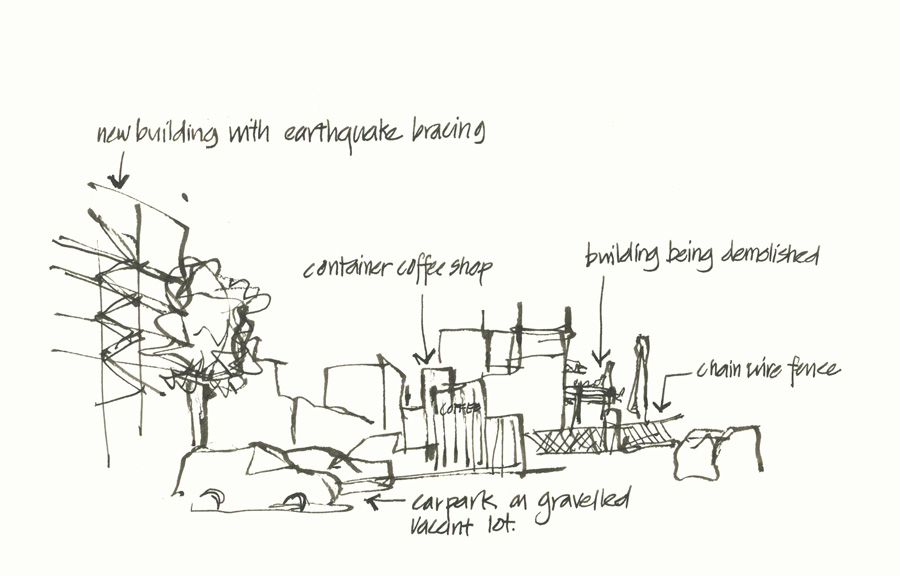 new building with earthquake bracing
container coffee shop
building being demolished
chain wire fence
COFFEE
carpark on gravelled
vacant lot.